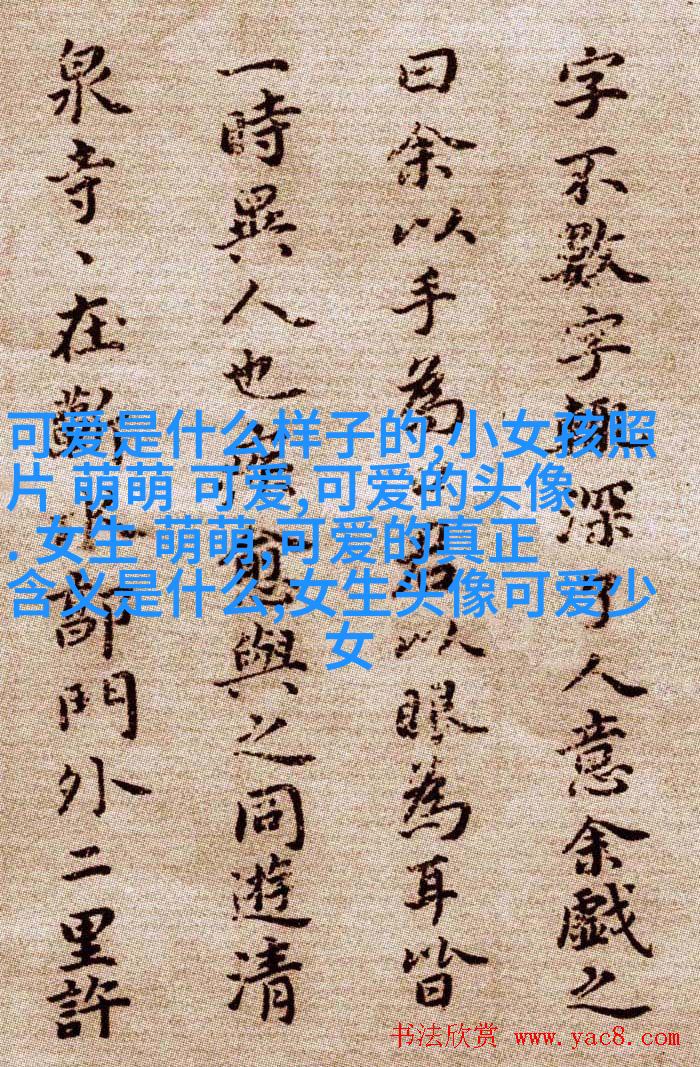 字不數字輒深了人意余戲之
曰余以手為君以眼為耳皆
一時異人也愈與之同遊清
泉寺、在蘄水郭門外二里許
可爱是什么样子的,小女孩照
片 萌萌 可爱,可爱的头像
. 女生 萌萌,可爱的真正
含义是什么,女生头像可爱少
女
书法欣赏 www.yac8.com